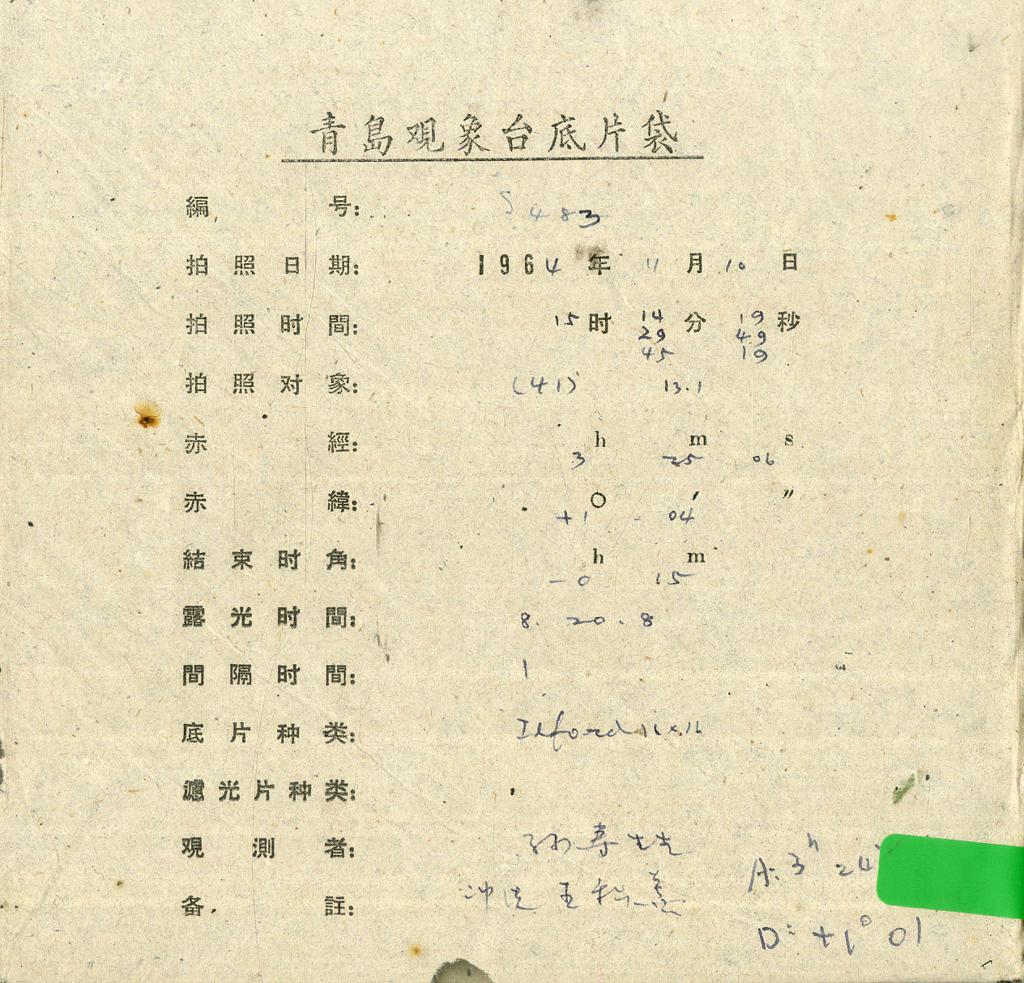 青島观象台底片袋
編号: S 483
拍照日期: 1964年 11月 10日
拍照时間: 15时 14分 19秒
29 49
45 19
拍照对象: (41) 13.1
赤經: 3h 25m 06s
赤緯: +1° 04′ ″
結束时角: -0h 15m
露光时間: 8. 20. 8
間隔时間: 1
底片种类: Ilford 16×16
濾光片种类:
观測者: 寿
备註: 冲洗 王
A: 3h 24
D: +1° 01